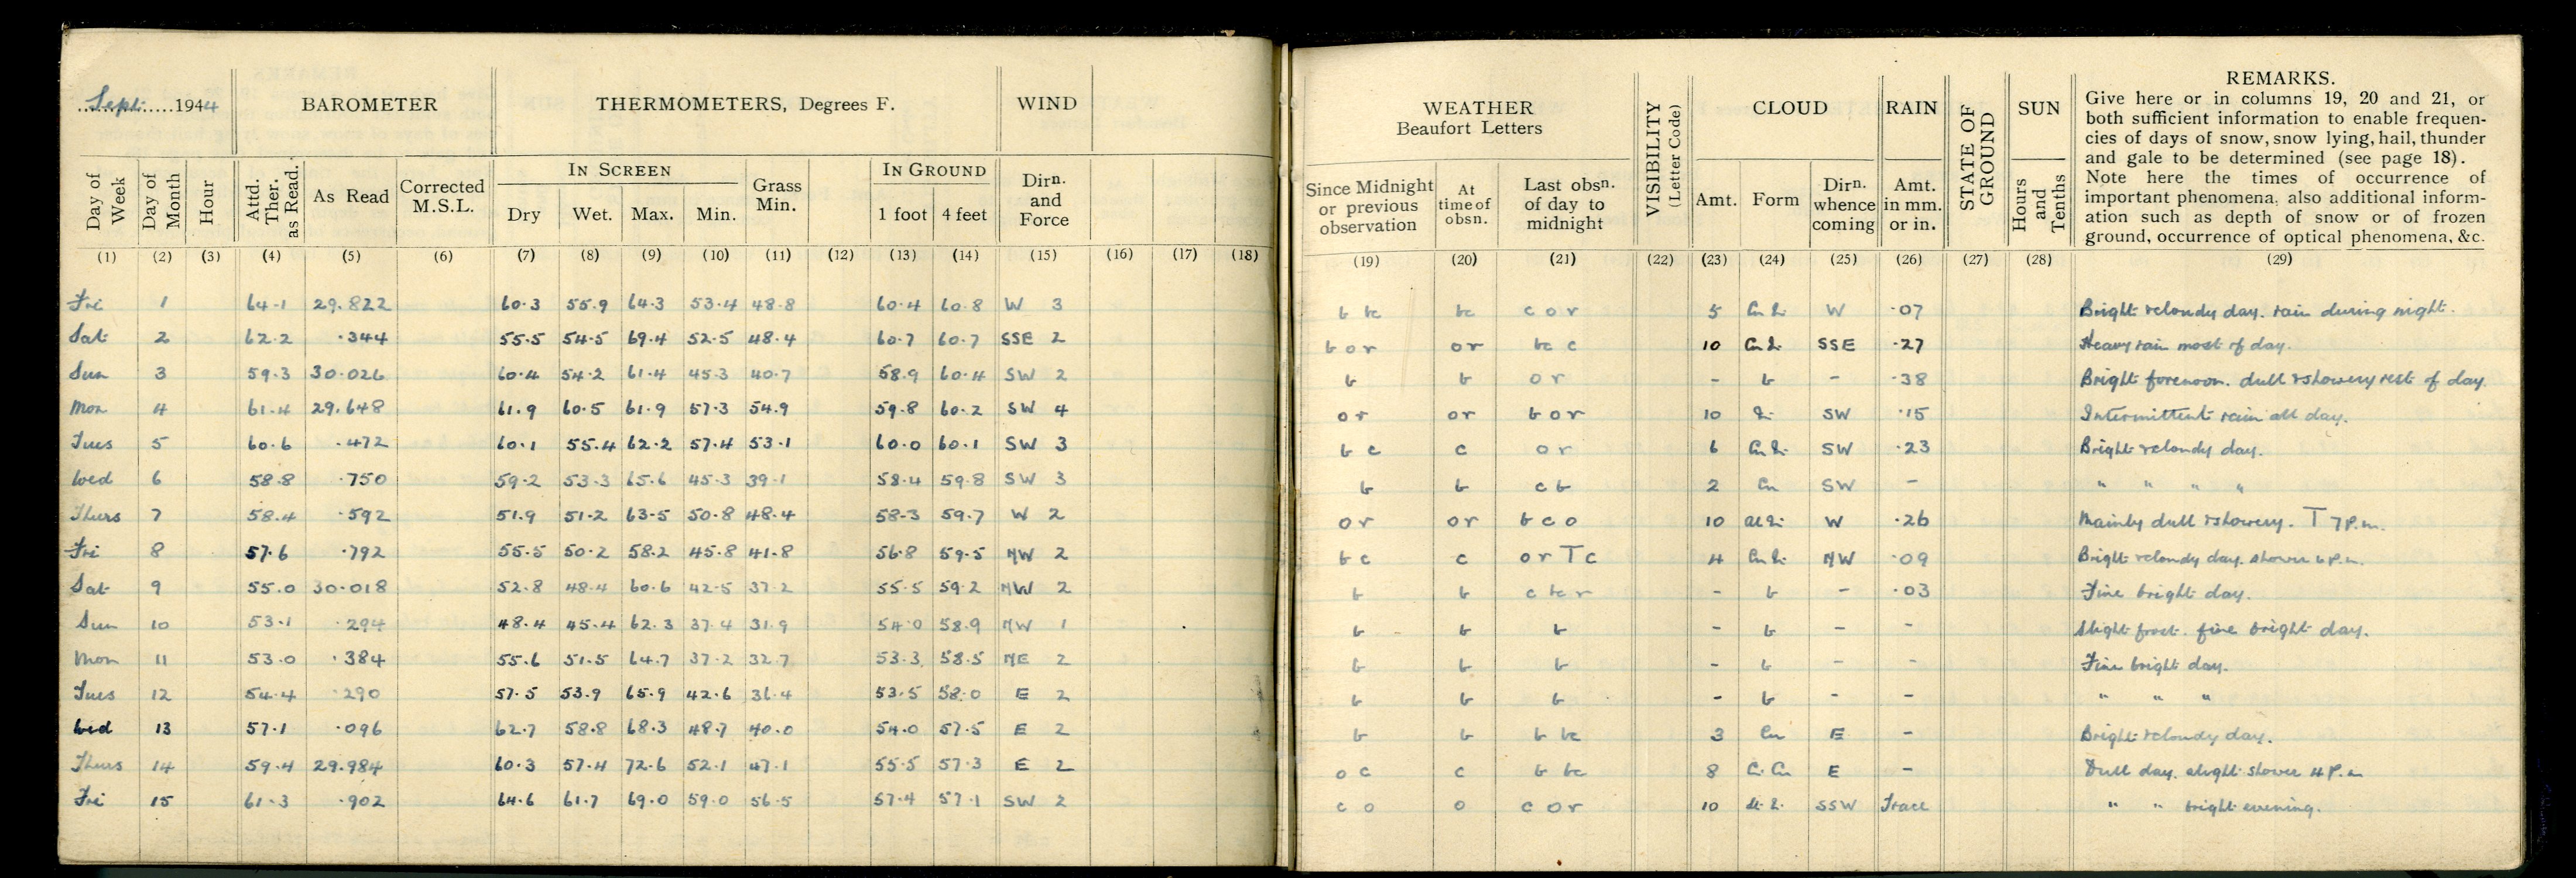 Sept. 1944
BAROMETER
THERMOMETERS, Degrees F.
WIND
WEATHER
Beaufort Letters
VISIBILITY
(Letter Code)
CLOUD
RAIN
STATE OF
GROUND
SUN
REMARKS.
Give here or in columns 19, 20 and 21, or
both sufficient information to enable frequen-
cies of days of snow, snow lying, hail, thunder
and gale to be determined (see page 18).
Note here the times of occurrence of
important phenomena, also additional inform-
ation such as depth of snow or of frozen
ground, occurrence of optical phenomena, &c.
Day of
Week
Day of
Month
Hour
Attd.
Ther.
as Read.
As Read
Corrected
M.S.L.
IN SCREEN
Dry
Wet.
Max.
Min.
Grass
Min.
IN GROUND
1 foot
4 feet
Dirn.
and
Force
Since Midnight
or previous
observation
At
time of
obsn.
Last obsn.
of day to
midnight
Amt.
Form
Dirn.
whence
coming
Amt.
in mm.
or in.
Hours
and
Tenths
(1) (2) (3) (4) (5) (6) (7) (8) (9) (10) (11) (12) (13) (14) (15) (16) (17) (18) (19) (20) (21) (22) (23) (24) (25) (26) (27) (28) (29)
Fri 1 64.1 29.822 60.3 55.9 64.3 53.4 48.8 60.4 60.8 W 3 b bc bc c o r 5 W .07 Bright & cloudy day. rain during night.
Sat 2 62.2 .344 55.5 54.5 69.4 52.5 48.4 60.7 60.7 SSE 2 b o r o r bc c 10 SSE .27 Heavy rain most of day.
Sun 3 59.3 30.026 60.4 54.2 61.4 45.3 40.7 58.9 60.4 SW 2 b b o r - b - .38 Bright forenoon. dull & showery rest of day.
Mon 4 61.4 29.648 61.9 60.5 61.9 57.3 54.9 59.8 60.2 SW 4 o r o r b o r 10 SW .15 Intermittent rain all day.
Tues 5 60.6 .472 60.1 55.4 62.2 57.4 53.1 60.0 60.1 SW 3 b c c o r 6 SW .23 Bright & cloudy day.
Wed 6 58.8 .750 59.2 53.3 65.6 45.3 39.1 58.4 59.8 SW 3 b b c b 2 Cu SW - " " " "
Thurs 7 58.4 .592 51.9 51.2 63.5 50.8 48.4 58.3 59.7 W 2 o r o r b c o 10 W .26 Mainly dull & showery. T 7 P.m.
Fri 8 57.6 .792 55.5 50.2 58.2 45.8 41.8 56.8 59.5 NW 2 b c c o r T c 4 NW .09 Bright & cloudy day. shower 6 P.m.
Sat 9 55.0 30.018 52.8 48.4 60.6 42.5 37.2 55.5 59.2 NW 2 b b c bc r - b - .03 Fine bright day.
Sun 10 53.1 .294 48.4 45.4 62.3 37.4 31.9 54.0 58.9 NW 1 b b b - b - - Slight frost. fine bright day.
Mon 11 53.0 .384 55.6 51.5 64.7 37.2 32.7 53.3 58.5 NE 2 b b b - b - - Fine bright day.
Tues 12 54.4 .290 57.5 53.9 65.9 42.6 36.4 53.5 58.0 E 2 b b b - b - - " " "
Wed 13 57.1 .096 62.7 58.8 68.3 48.7 40.0 54.0 57.5 E 2 b b b bc 3 Cu E - Bright & cloudy day.
Thurs 14 59.4 29.984 60.3 57.4 72.6 52.1 47.1 55.5 57.3 E 2 o c c b bc 8 E - Dull day. slight shower 4 P.m
Fri 15 61.3 .902 64.6 61.7 69.0 59.0 56.5 57.4 57.1 SW 2 c o o c o r 10 SSW Trace " " bright evening.